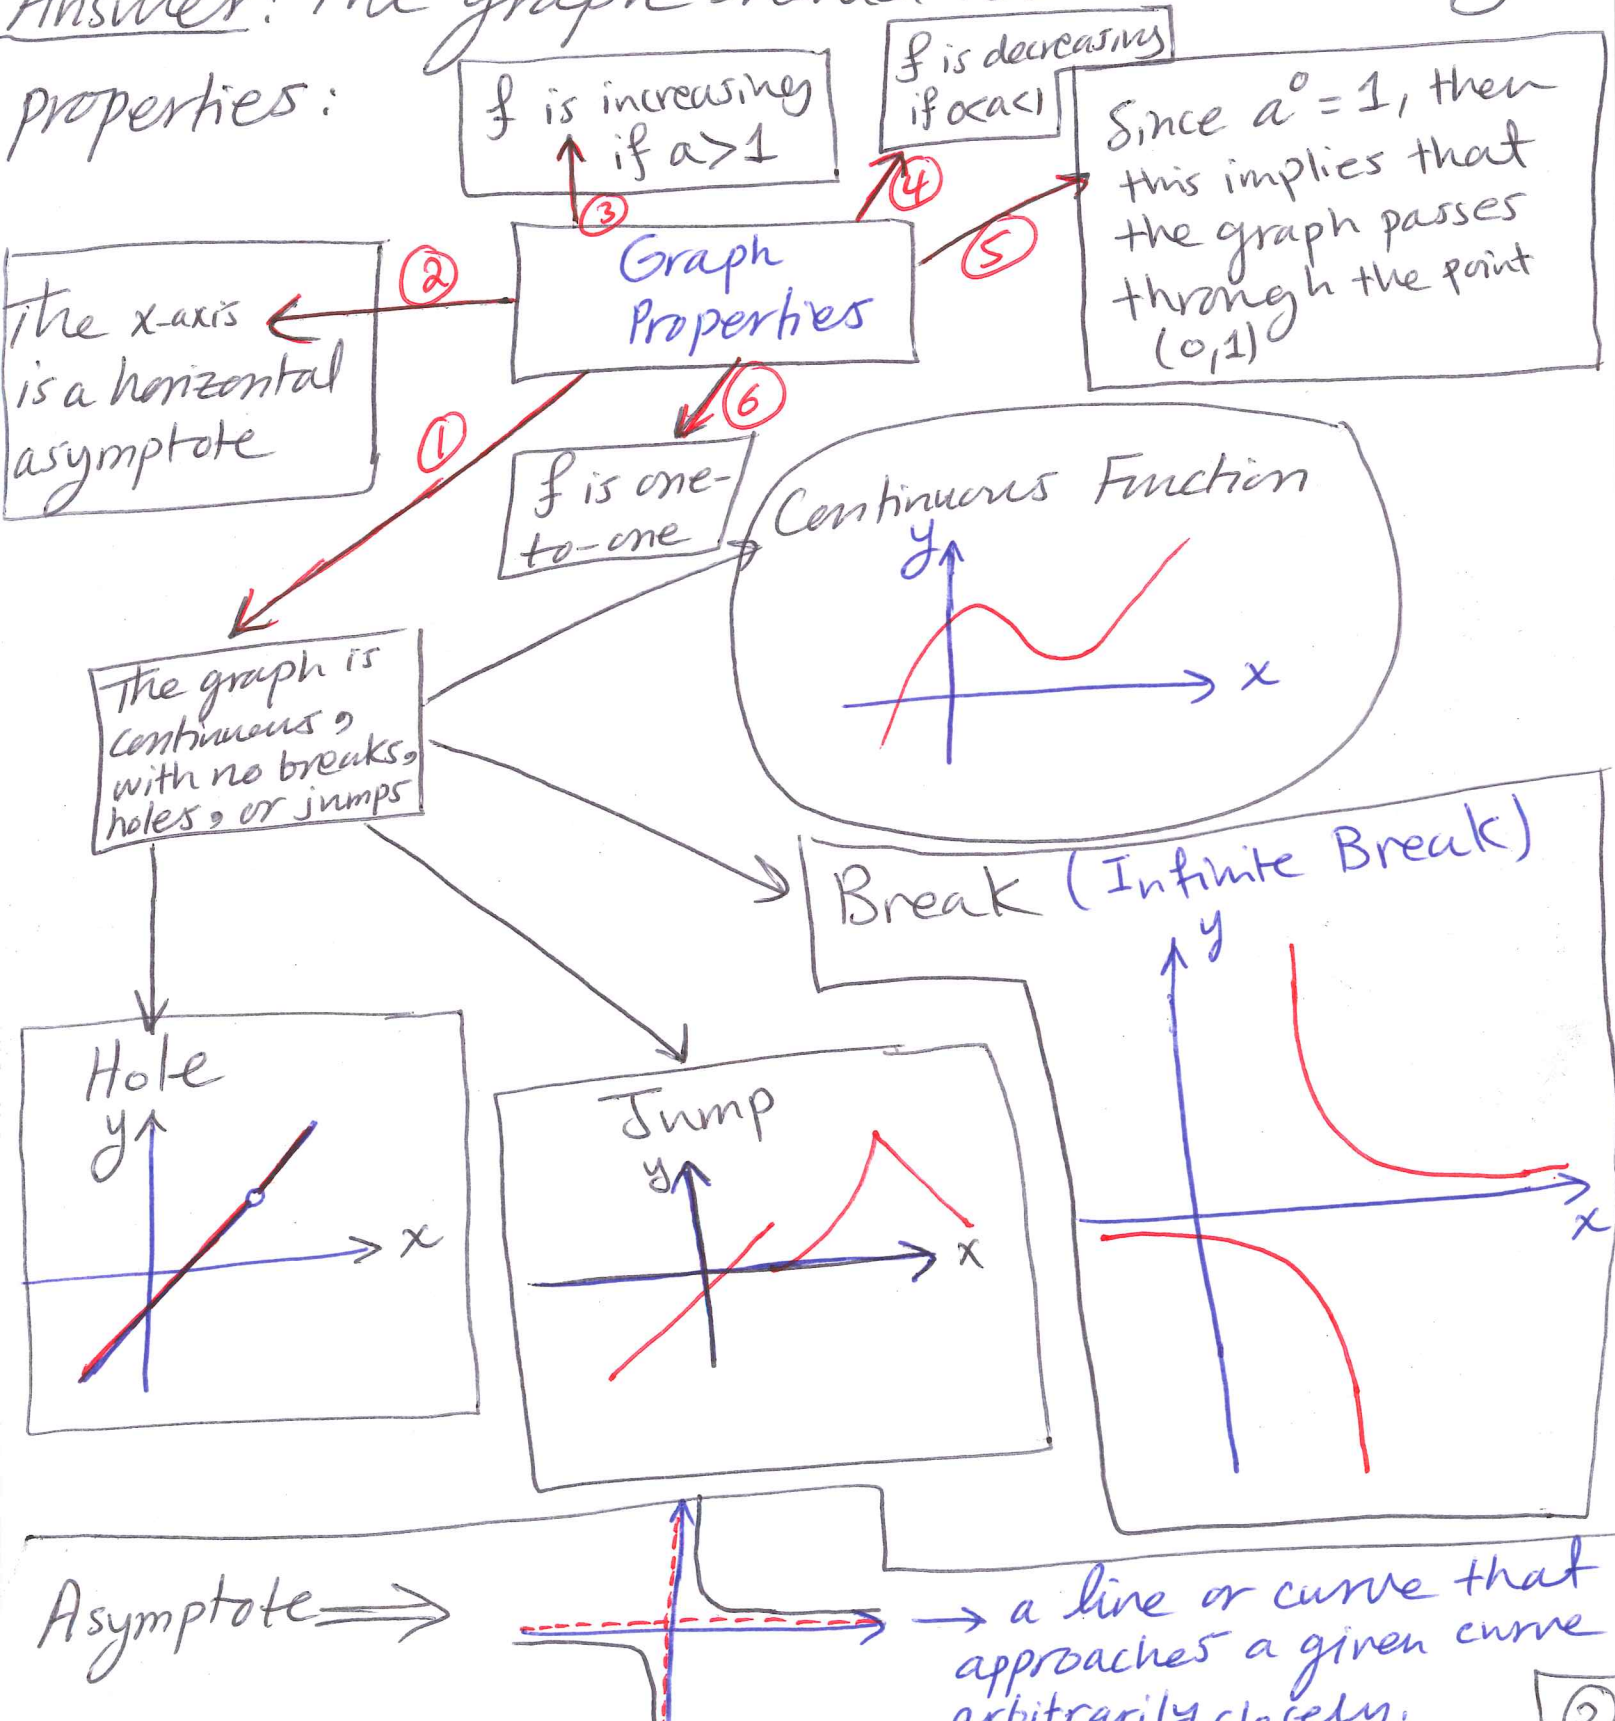 Answer: The graph
properties:
f is increasing
if a>1
f is decreasing
if 0<a<1
Since a⁰ = 1, then
this implies that
the graph passes
through the point
(0,1)
3
4
5
2
Graph
Properties
The x-axis
is a horizontal
asymptote
1
6
f is one-
to-one
Continuous Function
y
x
The graph is
continuous,
with no breaks,
holes, or jumps
Break (Infinite Break)
y
x
Hole
y
x
Jump
y
x
Asymptote
a line or curve that
approaches a given curve
arbitrarily closely.